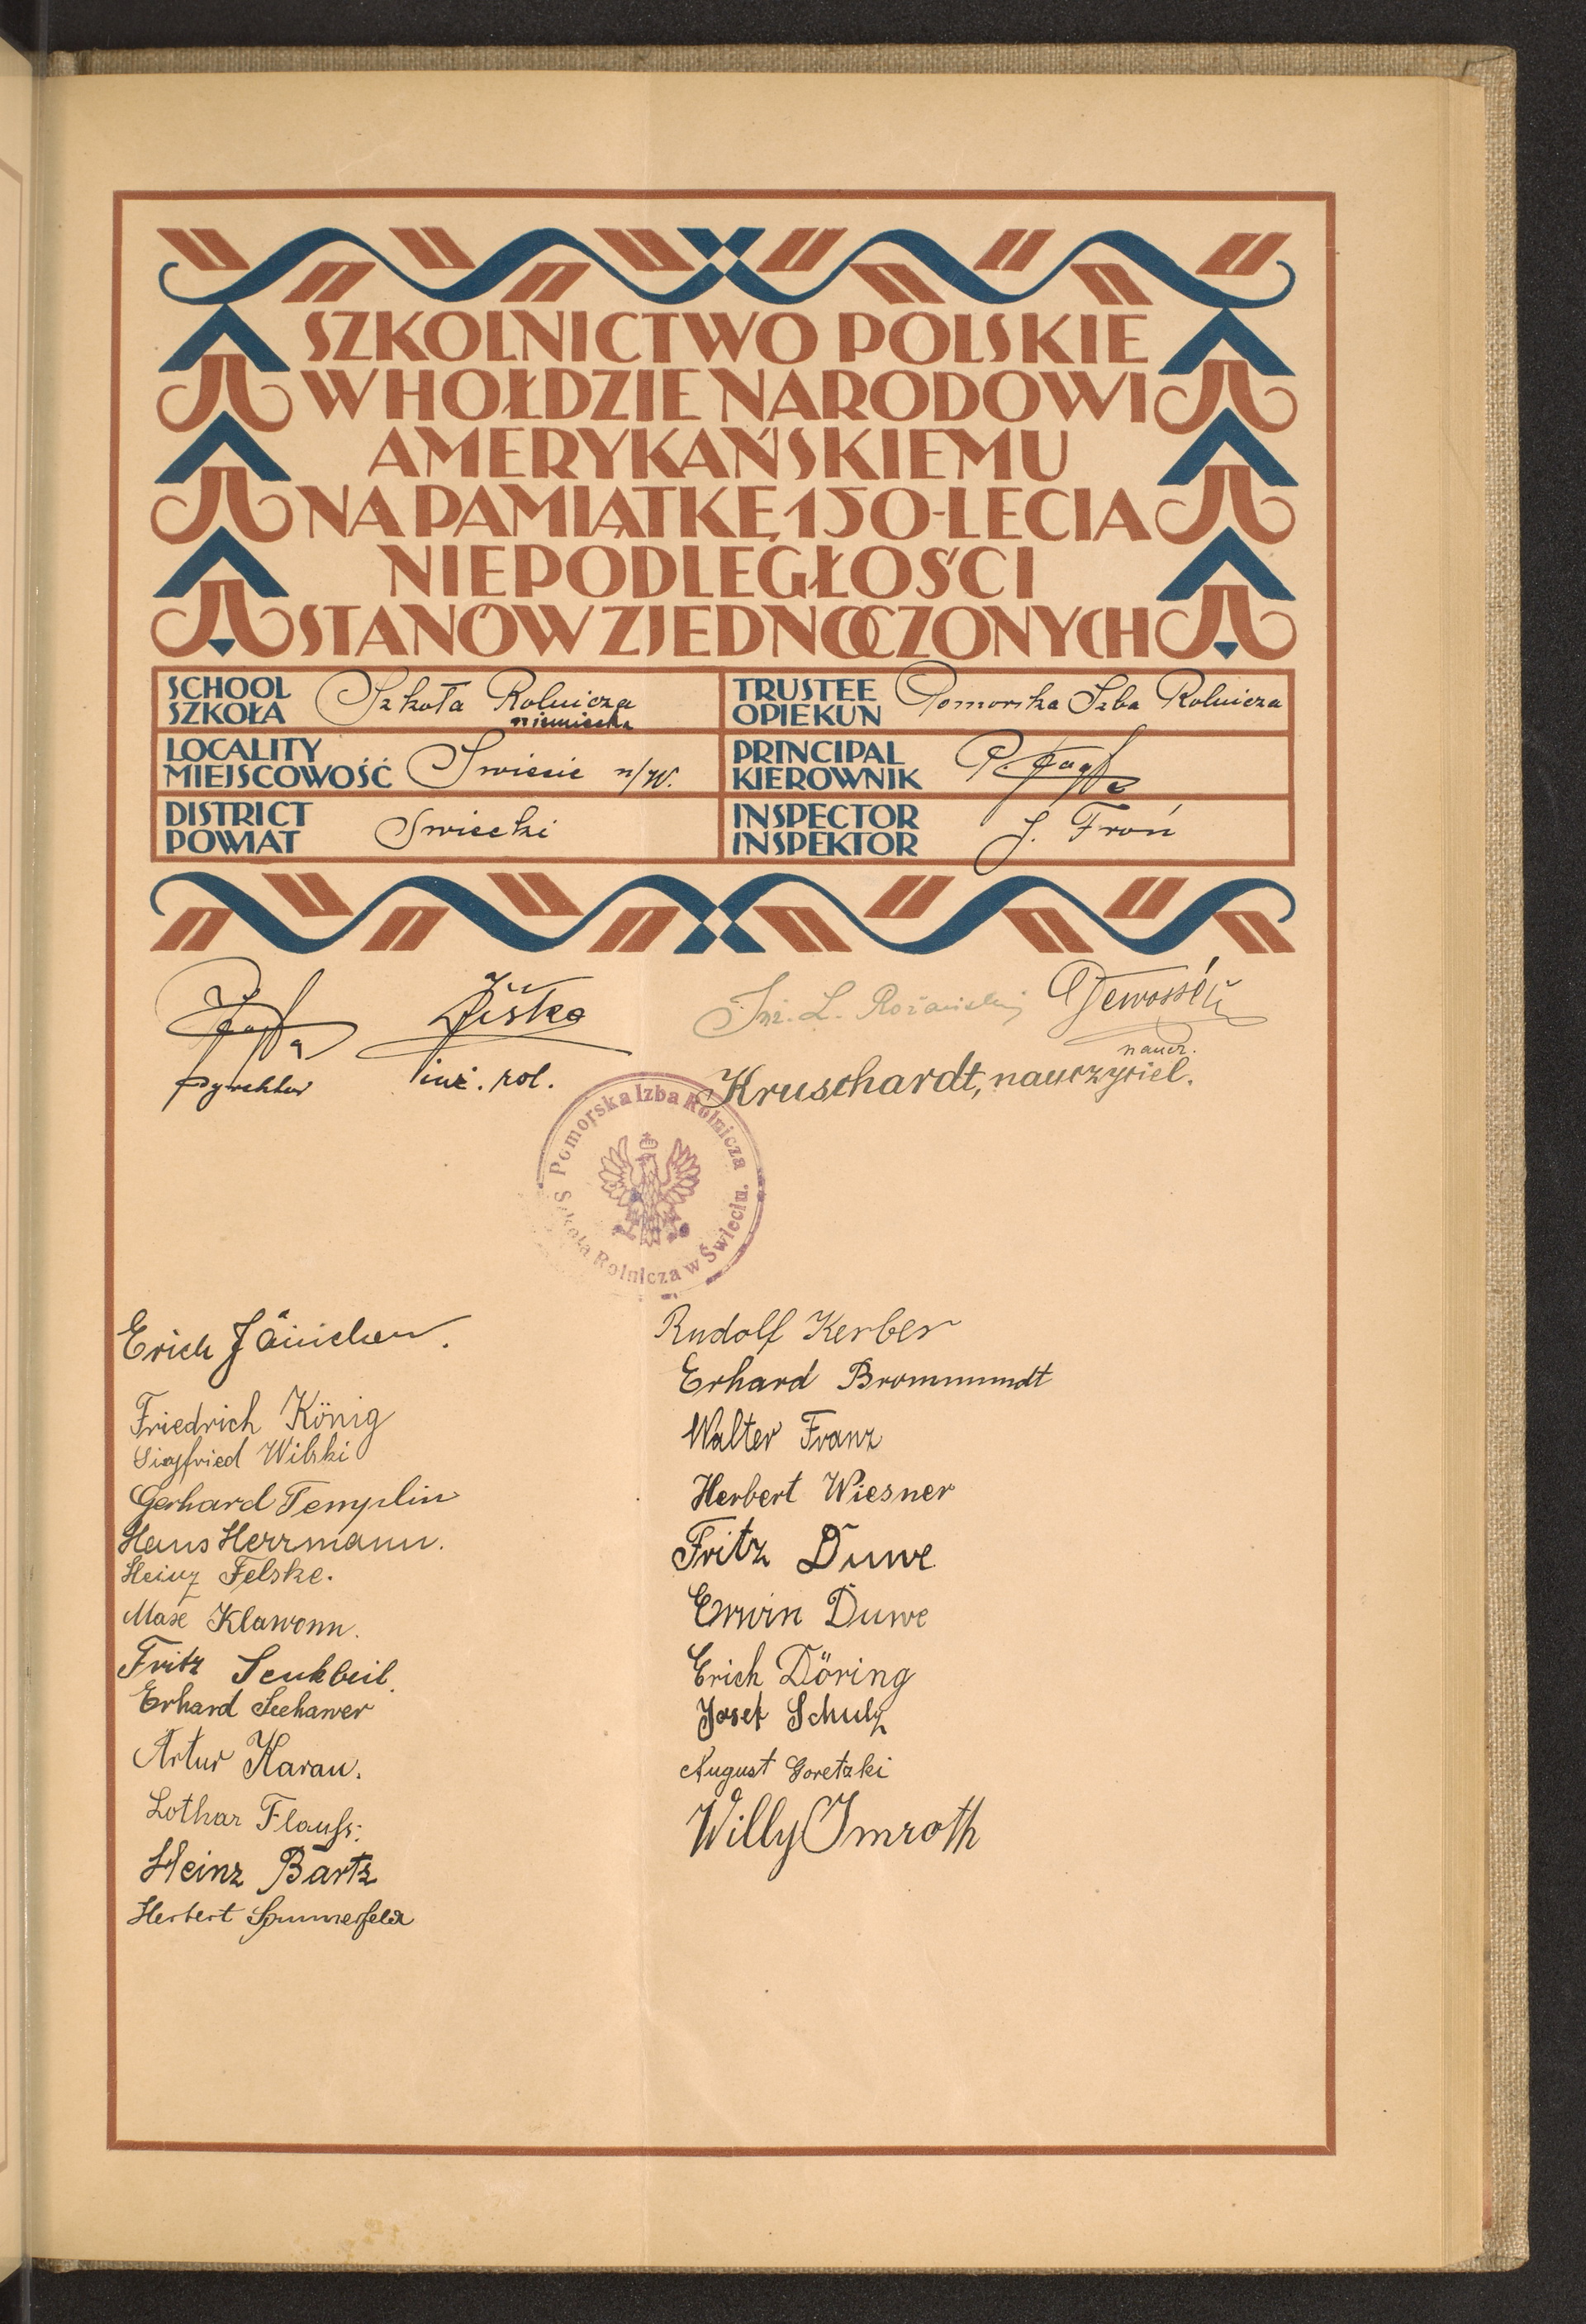 SZKOLNICTWO POLSKIE
W HOŁDZIE NARODOWI
AMERYKAŃSKIEMU
NA PAMIĄTKĘ 150-LECIA
NIEPODLEGŁOŚCI
STANÓW ZJEDNOCZONYCH
SCHOOL
SZKOŁA
Szkoła Rolnicza
niemiecka
TRUSTEE
OPIEKUN
Pomorska Izba Rolnicza
LOCALITY
MIEJSCOWOŚĆ
Swiecie n/W.
PRINCIPAL
KIEROWNIK
P.
DISTRICT
POWIAT
Swiecki
INSPECTOR
INSPEKTOR
J. Froń
Inż. L. Rożański
dyrektor
inż. rol.
naucz.
Kruschardt, nauczyciel.
Pomorska Izba Rolnicza
Szkoła Rolnicza w Świeciu.
Erich Jänichen.
Friedrich König
Siegfried Wilski
Gerhard Templin
Hans Herrmann.
Heinz Felske.
Max Klawonn.
Fritz Senkbeil.
Erhard Seehawer
Artur Karau.
Lothar Flauss.
Heinz Bartz
Herbert Sommerfeld
Rudolf Kerber
Erhard Brommundt
Walter Franz
Herbert Wiesner
Fritz Duwe
Erwin Duwe
Erich Döring
Josef Schulz
August Goretzki
Willy Imroth